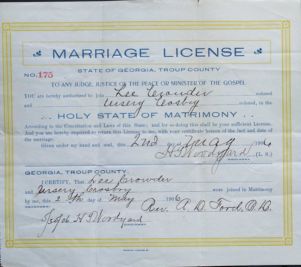 MARRIAGE LICENSE
STATE OF GEORGIA, TROUP COUNTY
NO. 175
TO ANY JUDGE, JUSTICE OF THE PEACE OR MINISTER OF THE GOSPEL
YOU are hereby authorized to join Lee Crowder colored
and Ursery Crosby colored, in the
... HOLY STATE OF MATRIMONY ...
According to the Constitution and Laws of this State; and for so doing this shall be your sufficient License.
And you are hereby required to return this License to me, with your certificate hereon of the fact and date of the marriage.
Given under my hand and seal, this 2nd day of May
H T Woodyard (L. S.)
GEORGIA, TROUP COUNTY.
I CERTIFY, That Lee Crowder
and Ursery Crosby were joined in Matrimony
by me, this day of May Rev. A. D. Ford, D.D.
H T Woodyard